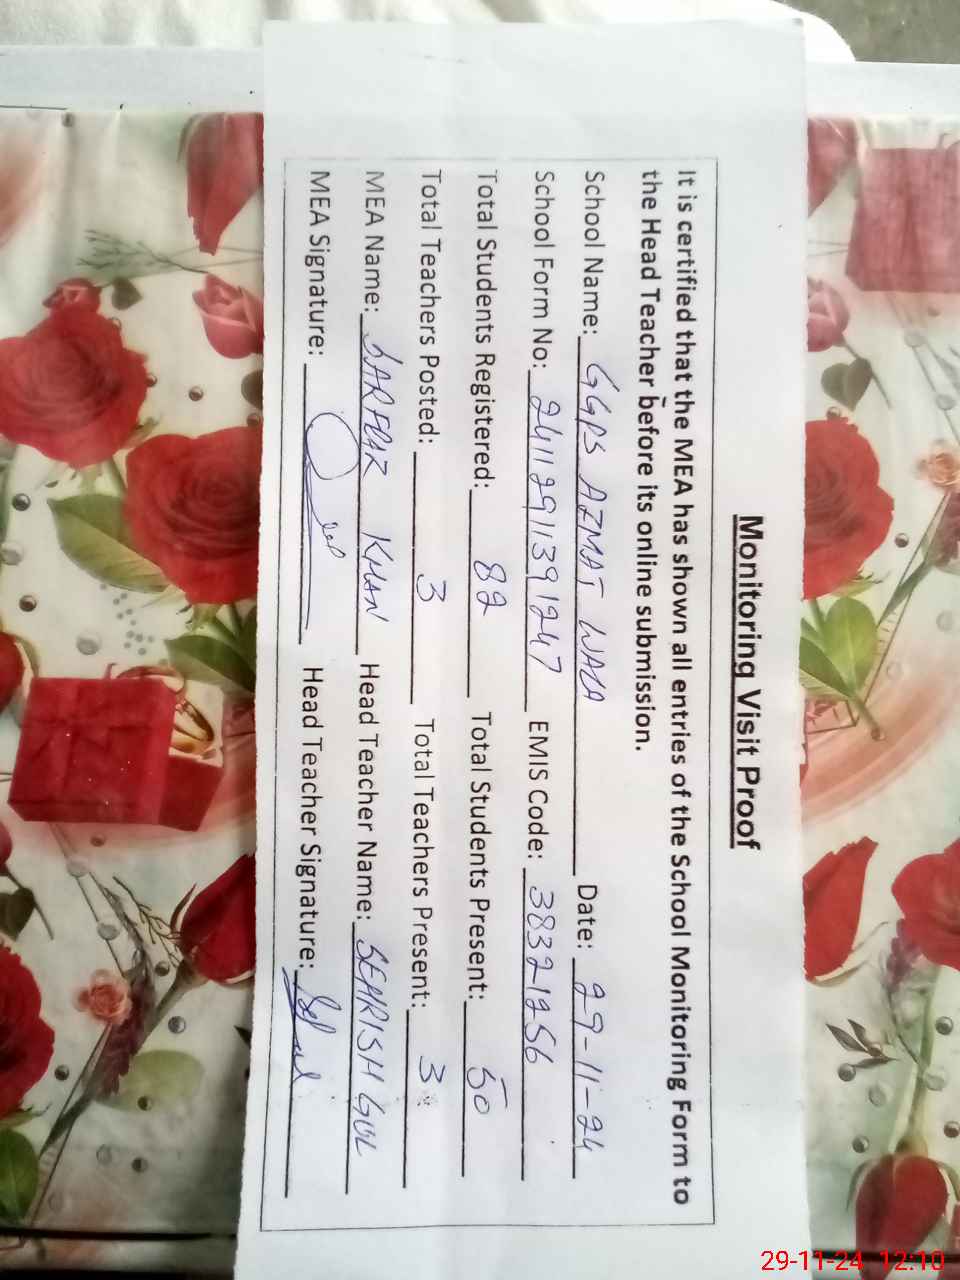 Monitoring Visit Proof
It is certified that the MEA has shown all entries of the School Monitoring Form to
the Head Teacher before its online submission.
School Name: GGPS AZMAT WALA Date: 29-11-24
School Form No: 24112911391247 EMIS Code: 38321256
Total Students Registered: 82 Total Students Present: 50
Total Teachers Posted: 3 Total Teachers Present: 3
MEA Name: SARFRAZ KHAN Head Teacher Name: SEHRISH GUL
MEA Signature: Head Teacher Signature:
29-11-24 12:10